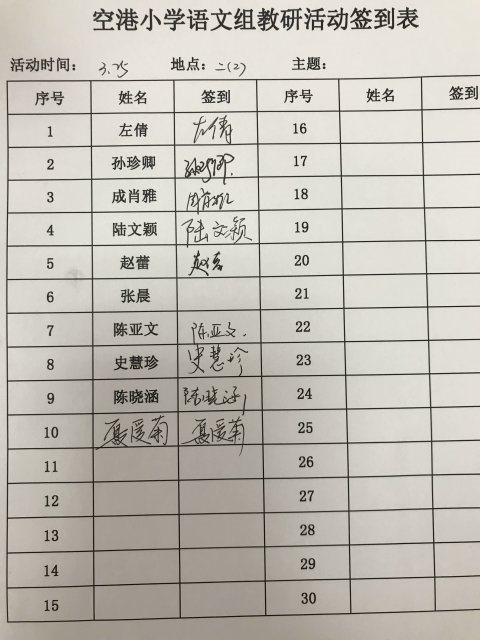 空港小学语文组教研活动签到表
活动时间： 3.25 地点：二(2) 主题：
序号 姓名 签到 序号 姓名 签到
1 左倩 左倩 16
2 孙珍卿 孙珍卿 17
3 成肖雅 18
4 陆文颖 陆文颖 19
5 赵蕾 赵蕾 20
6 张晨 21
7 陈亚文 陈亚文. 22
8 史慧珍 史慧珍 23
9 陈晓涵 陈晓涵 24
10 夏爱菊 夏爱菊 25
11 26
12 27
13 28
14 29
15 30